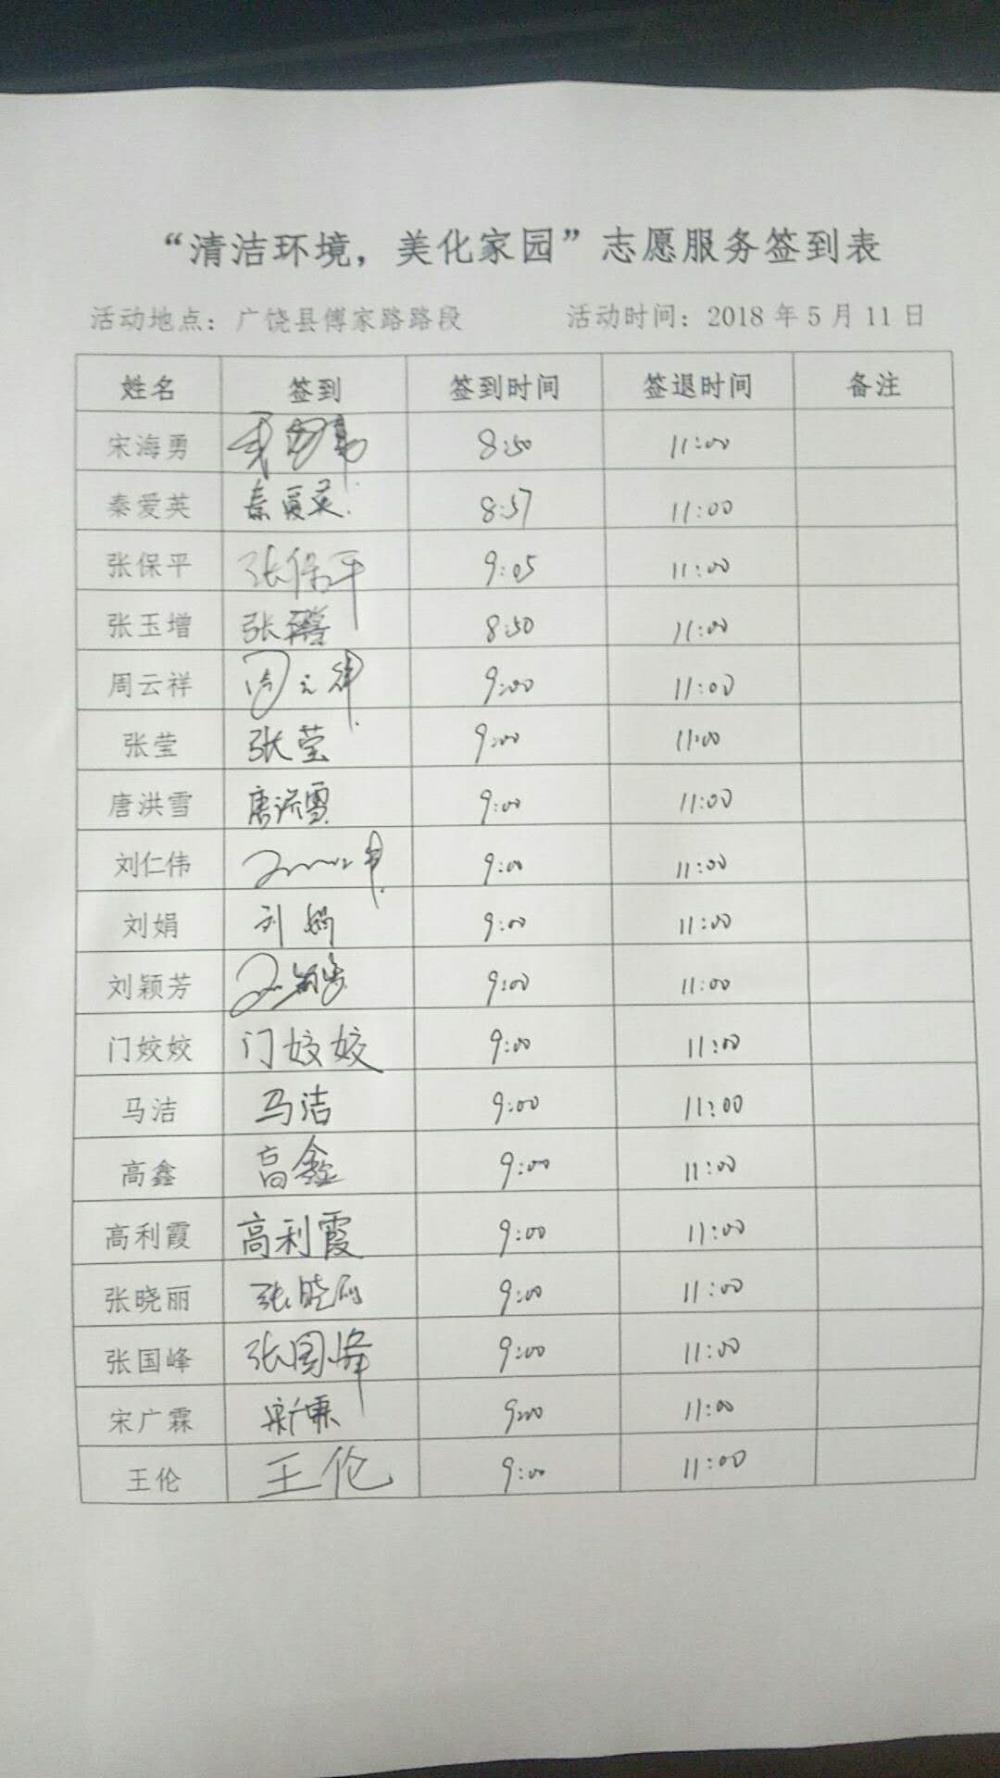 “清洁环境，美化家园”志愿服务签到表
活动地点：广饶县傅家路路段 活动时间：2018年5月11日
姓名 签到 签到时间 签退时间 备注
宋海勇 8:50 11:00
秦爱英 秦爱英 8:57 11:00
张保平 张保平 9:05 11:00
张玉增 张玉增 8:50 11:00
周云祥 周云祥 9:00 11:00
张莹 张莹 9:00 11:00
唐洪雪 唐洪雪 9:00 11:00
刘仁伟 9:00 11:00
刘娟 刘娟 9:00 11:00
刘颖芳 刘颖芳 9:00 11:00
门姣姣 门姣姣 9:00 11:00
马洁 马洁 9:00 11:00
高鑫 高鑫 9:00 11:00
高利霞 高利霞 9:00 11:00
张晓丽 张晓丽 9:00 11:00
张国峰 张国峰 9:00 11:00
宋广霖 宋广霖 9:00 11:00
王伦 王伦 9:00 11:00